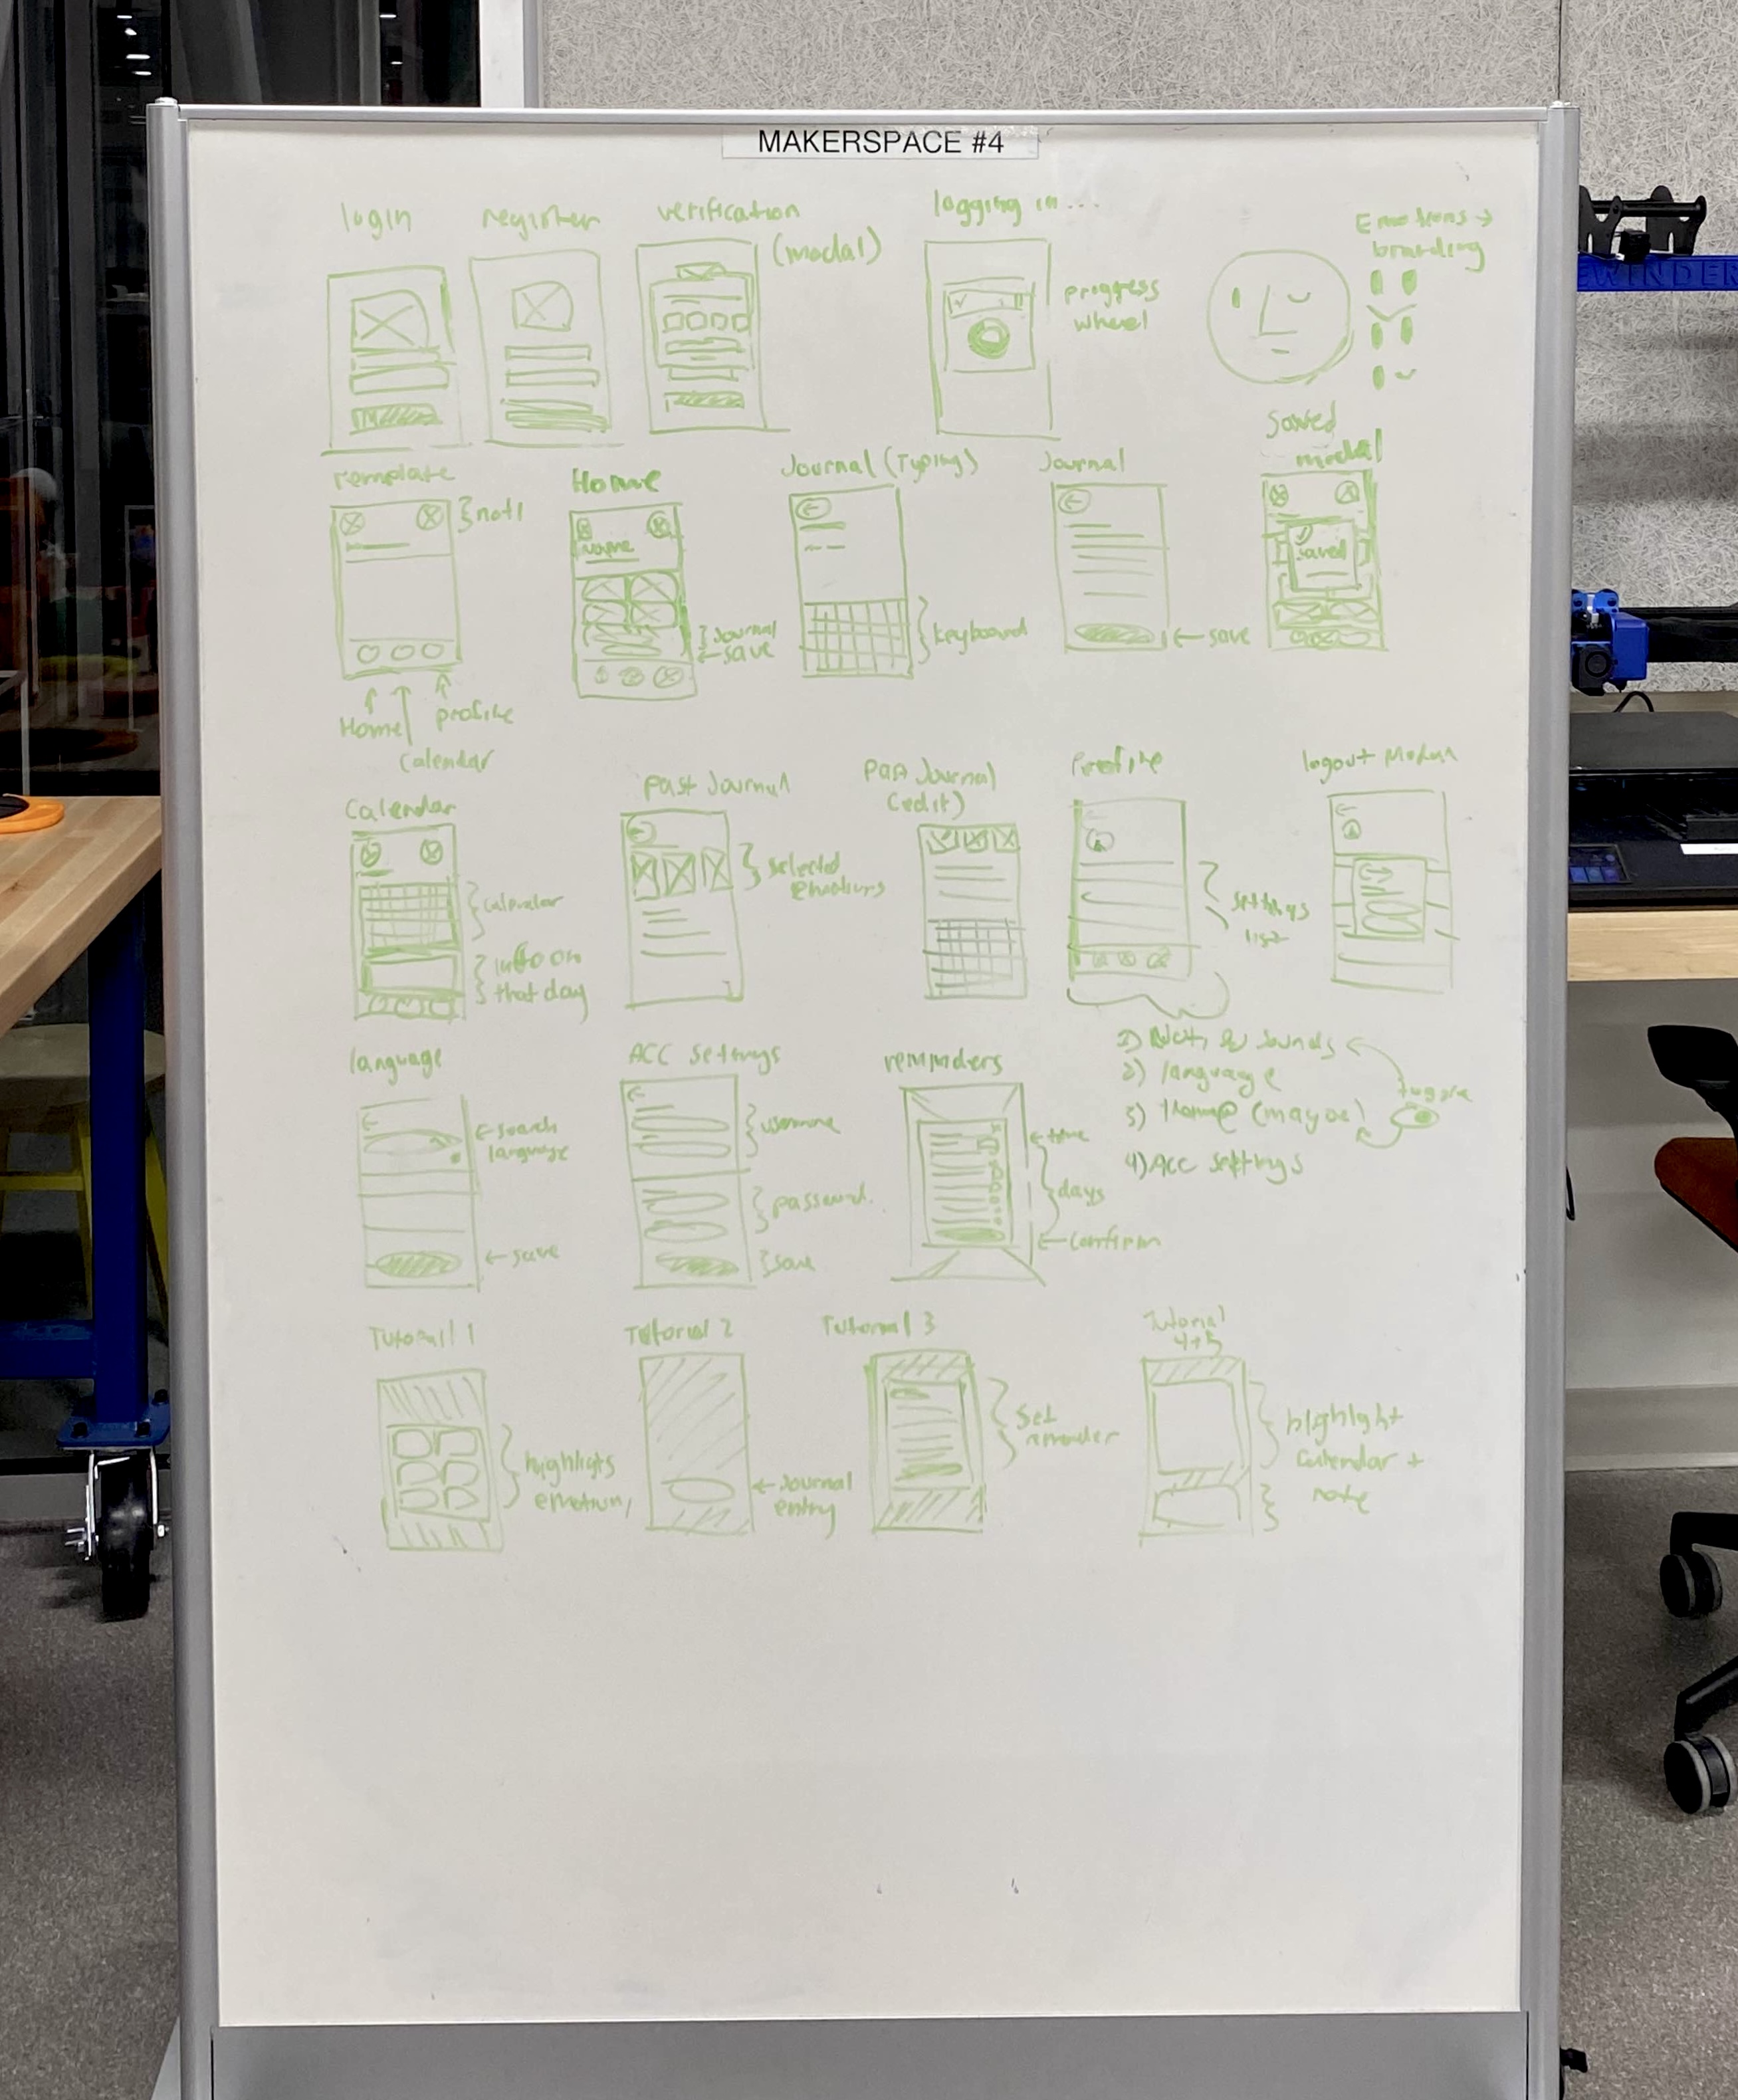 MAKERSPACE #4
login
register
verification
(modal)
logging in...
progress
wheel
Emotions →
branding
Template
noti
Home
calendar
profile
Home
Name
Journal
← save
Journal (Typing)
keyboard
Journal
← save
Saved
modal
saved
Calendar
calendar
info on
that day
Past Journal
selected
emotions
Past Journal
(edit)
Profile
settings
list
logout Modal
1) Noti & Sounds
2) language
3) theme (maybe)
4) Acc settings
toggle
language
← search
language
← save
ACC Settings
username
password.
save
reminders
← time
days
← confirm
Tutorial 1
highlights
emotion,
Tutorial 2
← Journal
entry
Tutorial 3
Set
reminder
Tutorial
4+5
highlight
calendar +
note